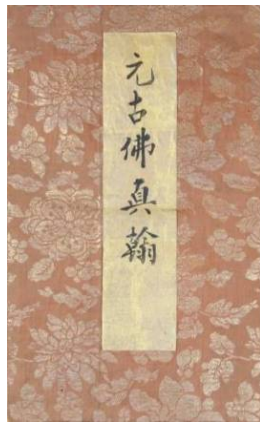 元古佛真翰